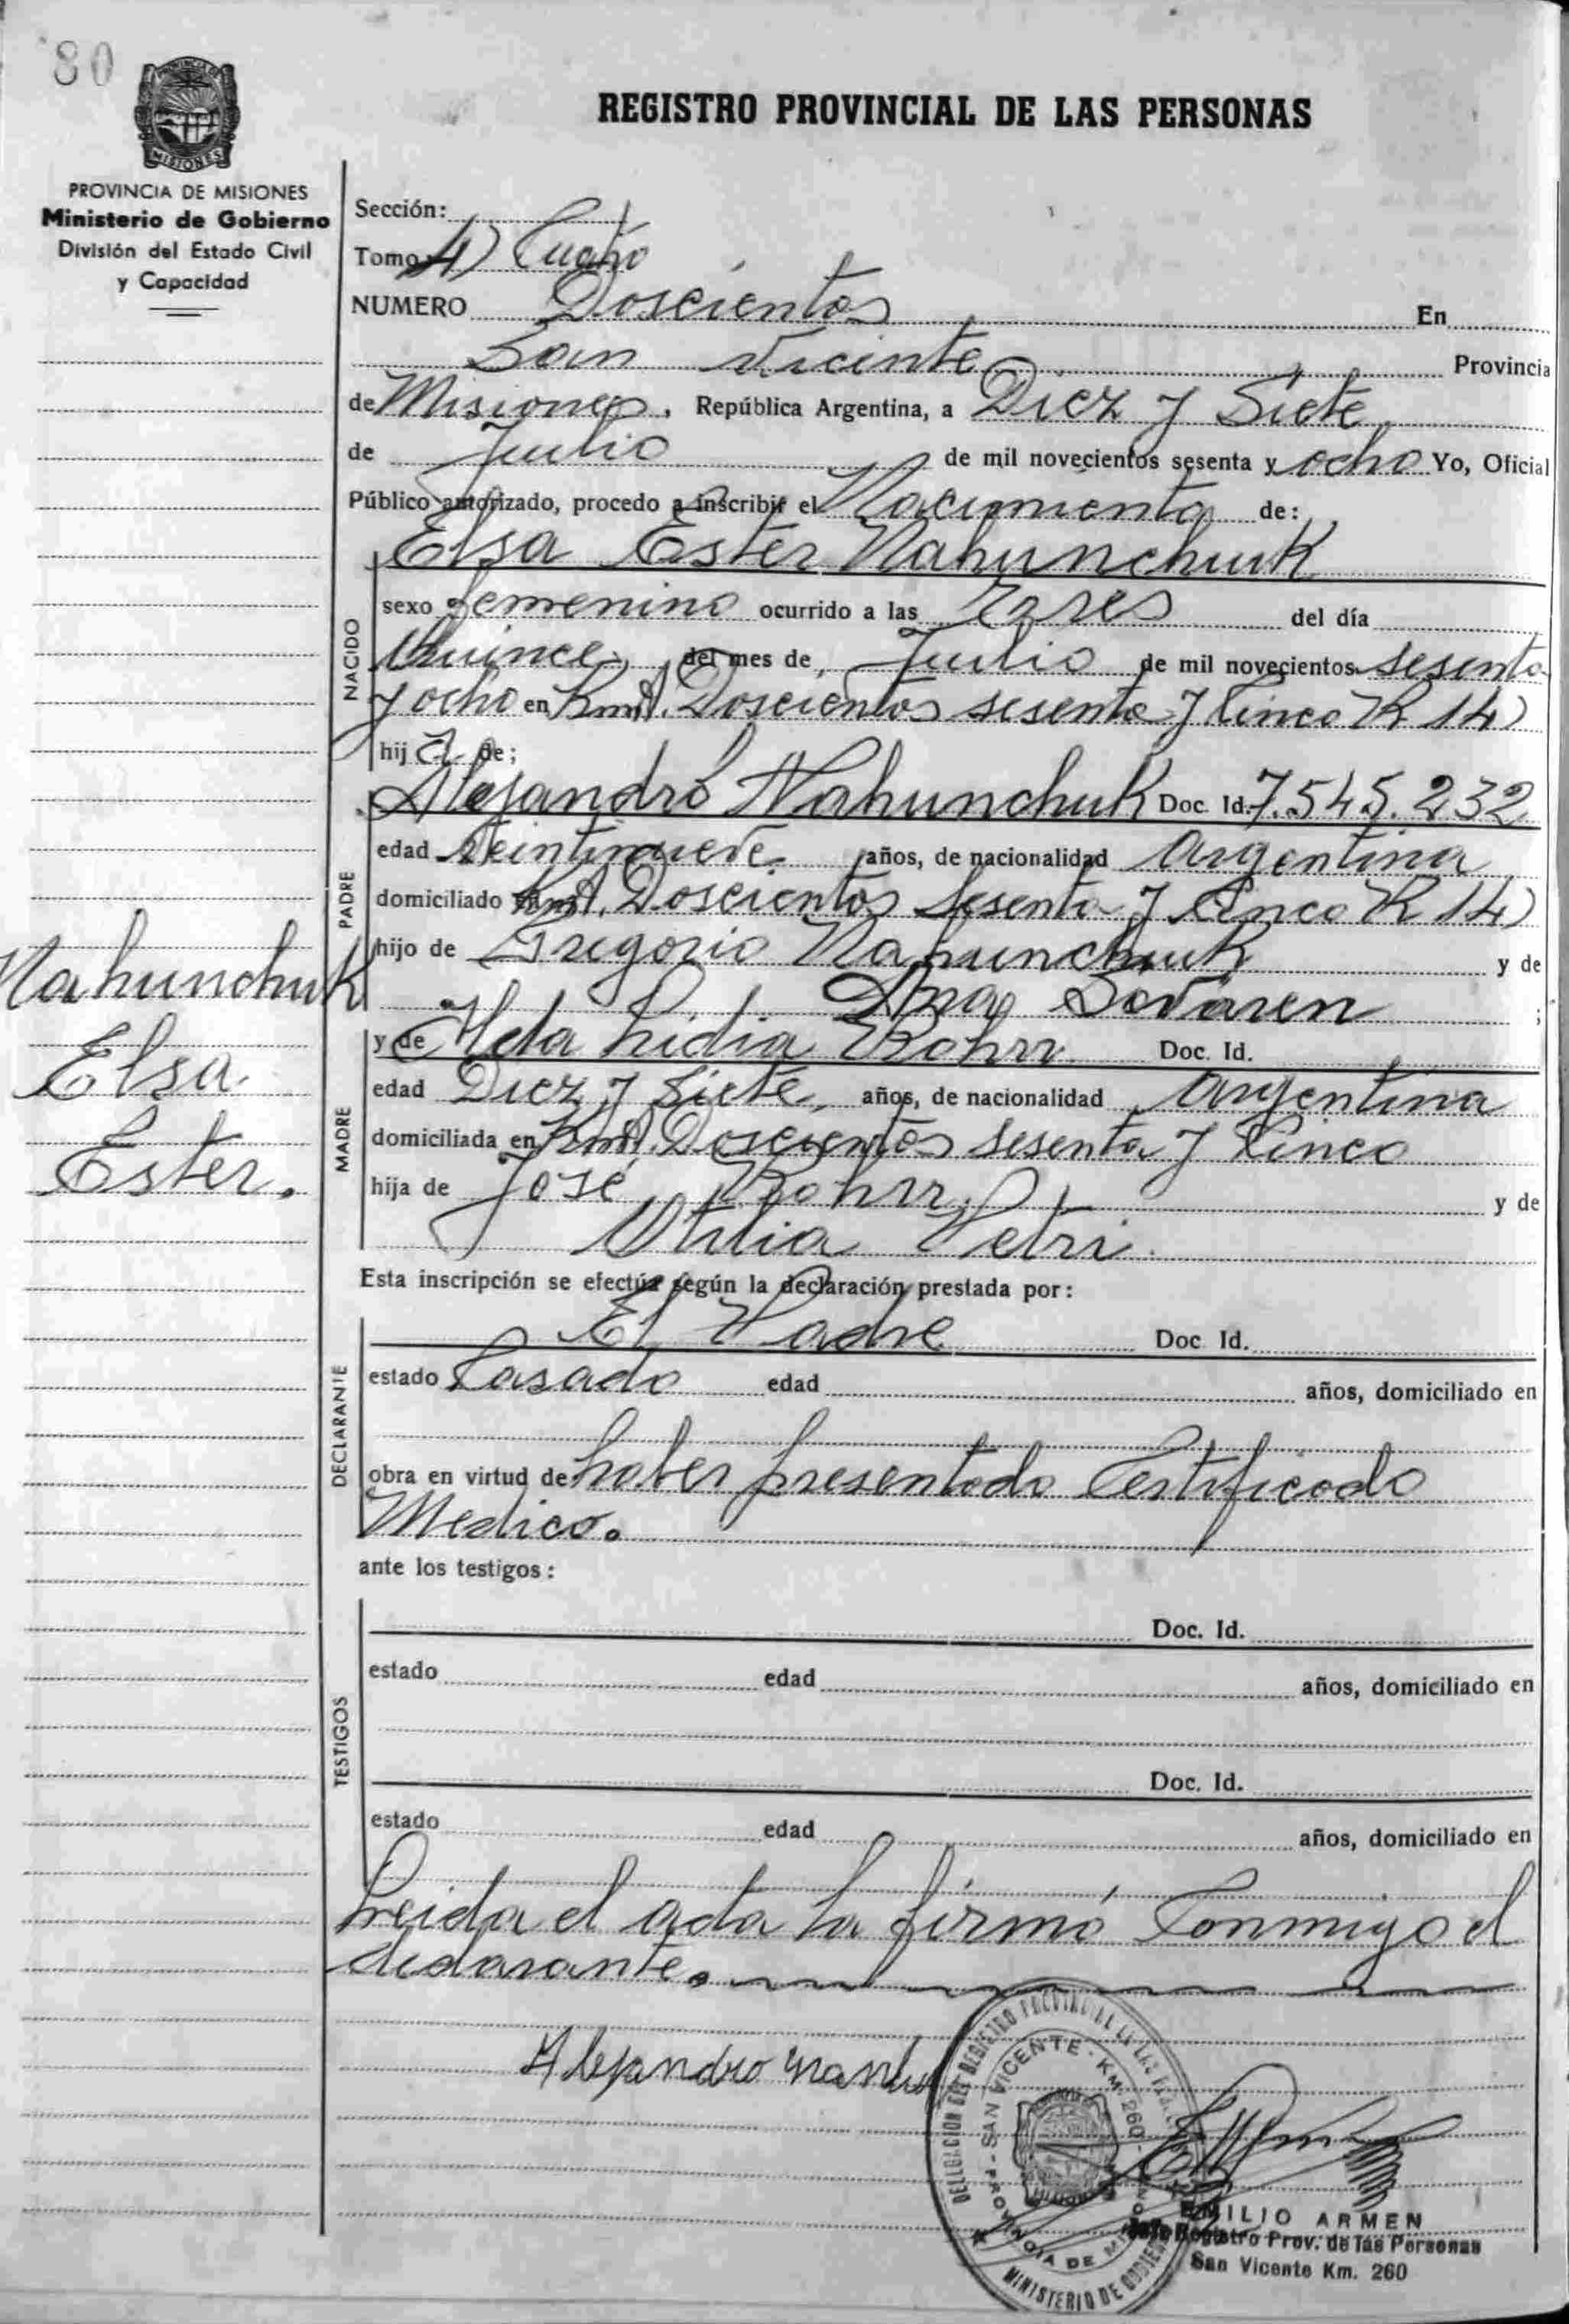 80
PROVINCIA DE MISIONES
Ministerio de Gobierno
División del Estado Civil
y Capacidad
REGISTRO PROVINCIAL DE LAS PERSONAS
Sección:
Tomo 4) Cuatro
NUMERO Doscientos En
San Vicente Provincia
de Misiones, República Argentina, a Diez y Siete
de Julio de mil novecientos sesenta y ocho Yo, Oficial
Público autorizado, procedo a inscribir el Nacimiento de:
Elsa Ester Nahunchuk
NACIDO
sexo femenino ocurrido a las Tres del día
Quince, del mes de, Julio de mil novecientos sesenta
y ocho en Kmt. Doscientos sesenta y Cinco R 14)
hija de;
Alejandro Nahunchuk Doc. Id. 7.545.232
PADRE
edad Veintinueve años, de nacionalidad Argentina
domiciliado Kmt. Doscientos Sesenta y Cinco R 14)
hijo de Gregorio Nahunchuk y de
Ana ;
MADRE
y de Elda Lidia Rohrr Doc. Id.
edad Diez y Siete, años, de nacionalidad Argentina
domiciliada en Kmt. Doscientos Sesenta y Cinco
hija de José Rohrr y de
Otilia Petri.
Esta inscripción se efectúa según la declaración prestada por:
DECLARANTE
El Padre Doc. Id.
estado Casado edad años, domiciliado en
obra en virtud de haber presentado Certificado
Medico.
ante los testigos:
TESTIGOS
Doc. Id.
estado edad años, domiciliado en
Doc. Id.
estado edad años, domiciliado en
Leida el acta la firmó Conmigo el
declarante.
Nahunchuk
Elsa
Ester.
Alejandro
DELEGACION DEL REGISTRO PROVINCIAL DE LAS PERSONAS
SAN VICENTE - KM. 260 - PROVINCIA DE MISIONES
MINISTERIO DE GOBIERNO
MISIONES
EMILIO ARMEN
Jefe Registro Prov. de las Personas
San Vicente Km. 260